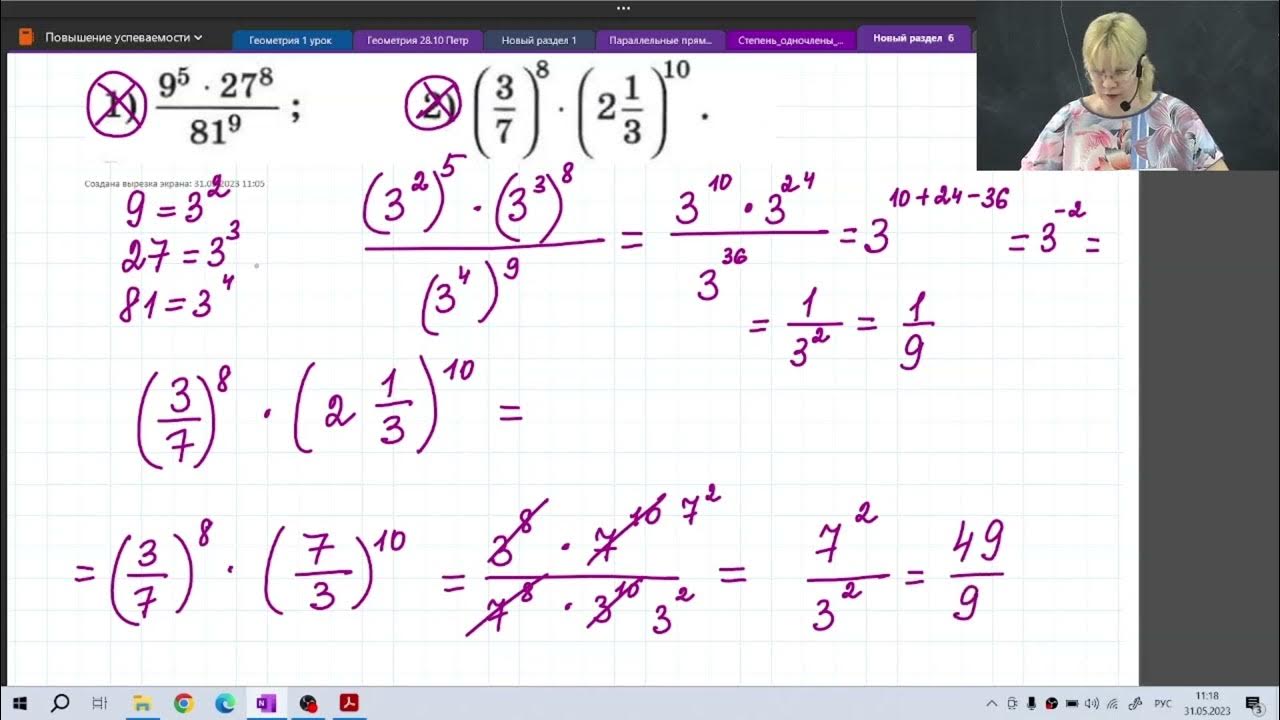 Повышение успеваемости
Геометрия 1 урок
Геометрия 28.10 Петр
Новый раздел 1
Параллельные прям...
Степень_одночлены_...
Новый раздел 6
1) 9⁵ · 27⁸ / 81⁹ ;
2) (3/7)⁸ · (2 1/3)¹⁰ .
Создана вырезка экрана: 31.05.2023 11:05
9 = 3²
27 = 3³
81 = 3⁴
(3²)⁵ · (3³)⁸ / (3⁴)⁹ = 3¹⁰ · 3²⁴ / 3³⁶ = 3¹⁰⁺²⁴⁻³⁶ = 3⁻² =
= 1/3² = 1/9
(3/7)⁸ · (2 1/3)¹⁰ =
= (3/7)⁸ · (7/3)¹⁰ = 3⁸ · 7¹⁰ 7² / 7⁸ · 3¹⁰ 3² = 7²/3² = 49/9
РУС
11:18
31.05.2023
3